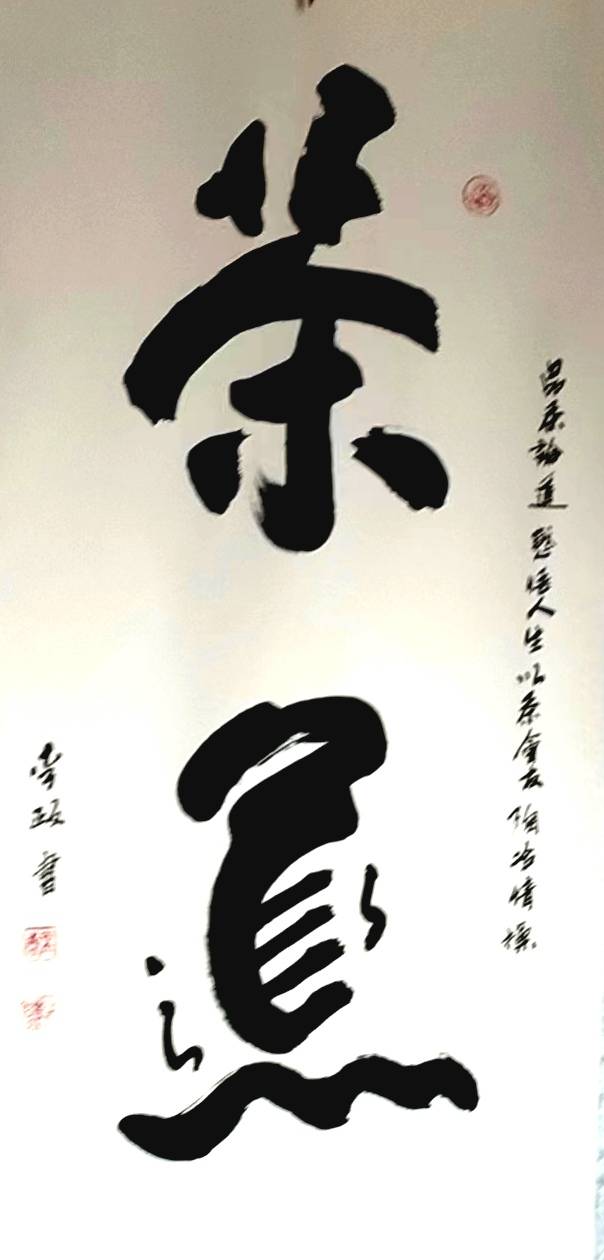 品茶論道 感悟人生 以茶會友 陶冶情操
茶道
李政書